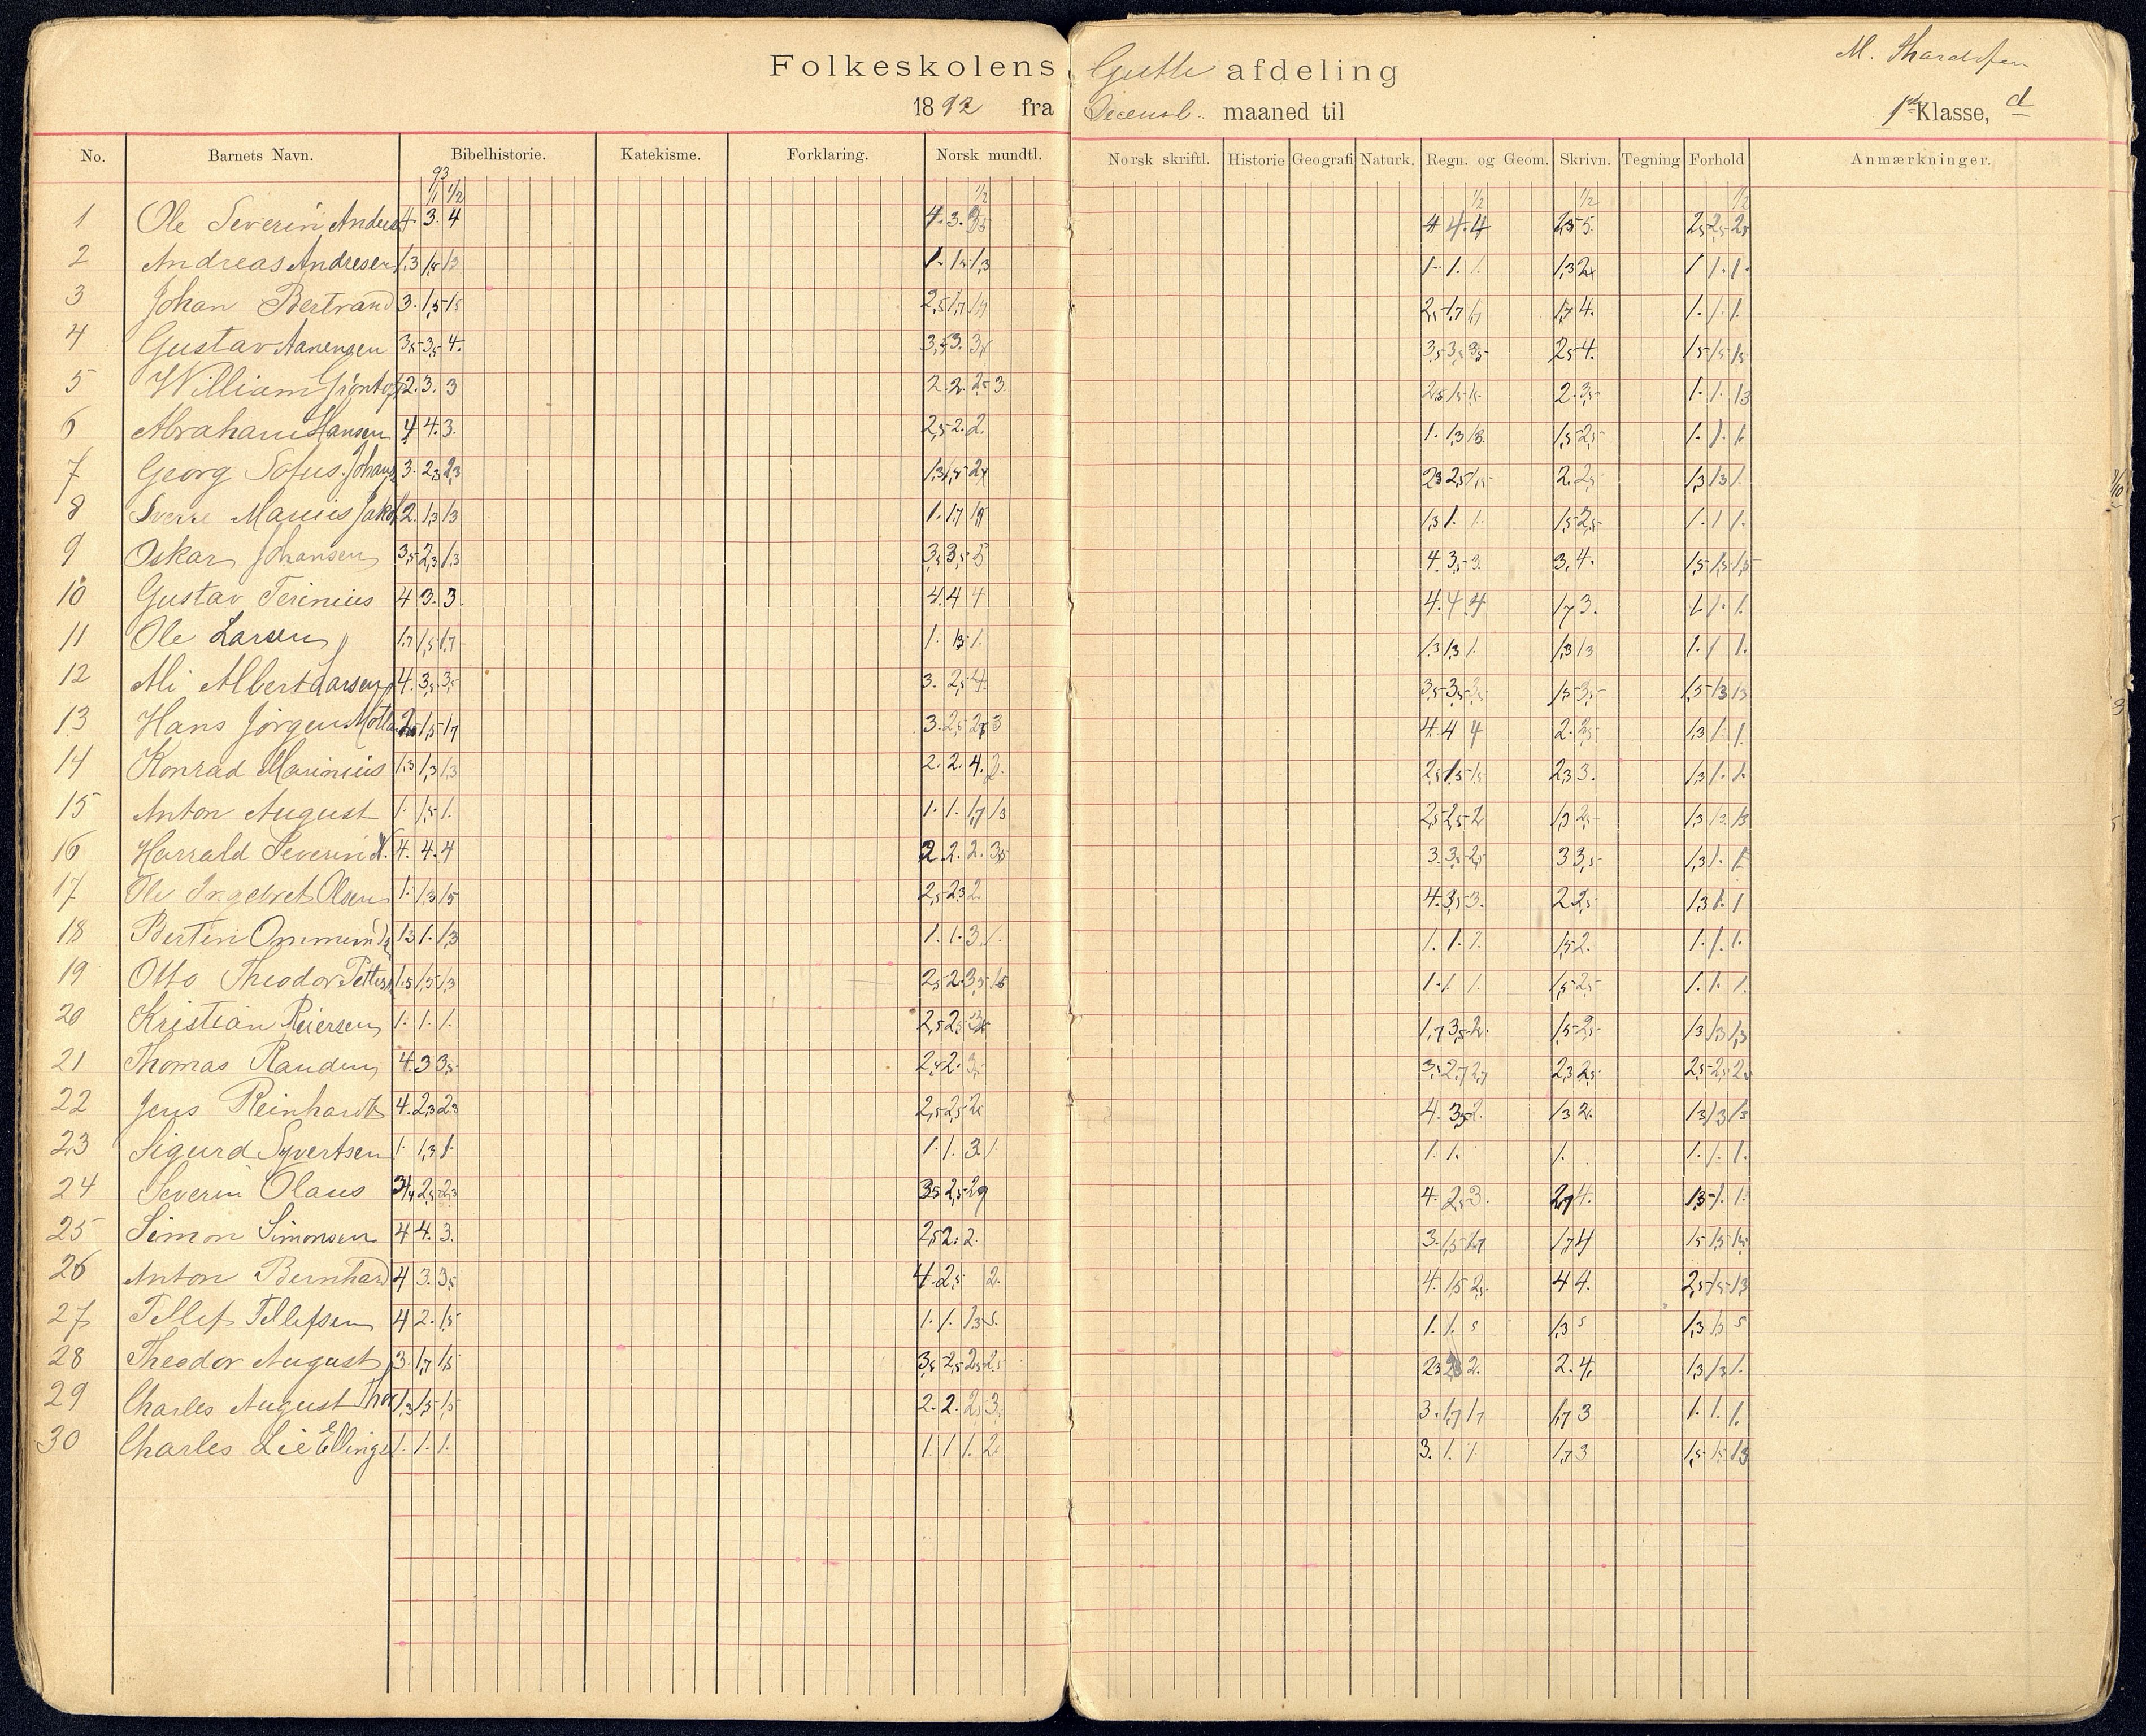 M. Tharaldsen
Folkeskolens Gutte afdeling
1892 fra Decemb. maaned til 1ste Klasse, d
No. Barnets Navn. Bibelhistorie. Katekisme. Forklaring. Norsk mundtl. Norsk skriftl. Historie Geografi Naturk. Regn. og Geom. Skrivn. Tegning Forhold Anmærkninger.
93
1/1 1/2 1/2 1/2 1/2 1/2
1 Ole Severin 4. 3. 4 4. 3. 4 4. 4 2,5 2,5 2,5
2 Andreas Andresen 1,3 1,5 1,3 1. 1,5 1,3 1. 1. 1. 1,3 1 1. 1.
3 Johan Bertrand 3. 1,5 1,5 2,5 1,7 2,5 1,7 1,7 1,7 4. 1. 1. 1.
4 Gustav Aanensen 3,5 3,5 4. 3,5 3. 3,5 3,5 3,5 3,5 2,5 4. 1,5 1,5 1,5
5 William 2. 3. 3 2. 2. 2,5 3. 2,5 1,5 1,5 2. 3,5 1. 1. 1,3
6 Abraham Hansen 4 4. 3. 2,5 2. 2. 1. 1,3 1,5 2,5 1. 1. 1.
7 Georg Sofus 3. 2,3 2,3 1,3 1,5 2,3 2,5 1,5 2. 2,5 1,3 1,3 1.
8 Sverre Marius Jakob 2. 1,3 1,3 1. 1,7 1,3 1. 1. 1,5 2,5 1. 1 1.
9 Oskar Johansen 3,5 2,3 1,3 3,5 3,5 4. 3,5 3. 3,4. 1,5 1,5 1,5
10 Gustav Terinius 4 3. 3. 4. 4 4 4. 4. 4 1,7 3. 1. 1. 1.
11 Ole Larsen 1,7 1,5 1,7 1. 1,5 1. 1,3 1,3 1. 1,3 1,3 1. 1 1.
12 Ali Albert Larsen 4. 3,5 3,5 3. 2,5 4. 3,5 3,5 3,5 1,5 3,5 1,5 1,3 1,3
13 Hans Jörgen 1,5 1,7 3. 2,5 3 4. 4 4 2. 3,5 1,3 1. 1.
14 Konrad Marinius 1,3 1,3 1,3 2. 2. 4. 2. 2,5 1,5 1,5 2,3 3. 1,3 1. 1.
15 Anton August 1. 1,5 1. 1. 1. 1,7 1,3 2,5 2,5 2 1,3 2,5 1,3 1,3 1,3
16 Harrald Severin 4. 4. 4 2. 2. 2. 3,5 3. 3,5 2,5 3 3,5 1,3 1.
17 Ole Ingebret Olsen 1. 1,3 1,5 2,5 2,3 2. 4. 3,5 3. 2 2,5 1,3 1. 1
18 Bertin Ommund 1,3 1. 1,3 1. 1. 3. 1. 1. 1. 1. 1,5 2. 1. 1. 1.
19 Otto Theodor 1,5 1,5 1,3 2,5 2. 3,5 1,5 1. 1. 1. 1,5 2,5 1. 1. 1.
20 Kristian Reiersen 1. 1. 1. 2,5 2,5 1,7 3,5 2. 1,5 2,5 1,3 1,3 1,3
21 Thomas Randen 4. 3 3,5 2,5 2. 3,5 3,5 2,7 2,7 2,3 2,5 2,5 2,5 2,5
22 Jens Reinhardt 4. 2,3 2,3 2,5 2,5 2. 4. 3,5 2. 1,3 2. 1,3 1,3 1,3
23 Sigurd Syvertsen 1. 1,3 1. 1. 1. 3. 1. 1. 1. 1. 1. 1. 1.
24 Severin Olaus 2,5 2,3 3,5 2,5 4. 2,5 3. 4. 1,3 1. 1.
25 Simon Simonsen 4 4. 3. 2,5 2. 2. 3. 1,5 1,7 1,7 4 1,5 1,5 1,5
26 Anton Bernhard 4 3. 3,5 4. 2,5 2. 4. 1,5 2,5 4 4. 2,5 1,5 1,3
27 Tellef Tellefsen 4 2. 1,5 1. 1. 1,3 s. 1. 1. s 1,3 s 1,3 1,3 s
28 Theodor August 3. 1,7 1,5 3,5 2,5 2,5 2,5 2,3 2. 2. 4. 1,3 1,3 1.
29 Charles August Thor 1,3 1,5 1,5 2. 2. 2,5 3. 3. 1,7 1,7 1,7 3 1. 1. 1.
30 Charles Lie Ellings 1. 1. 1. 1. 1 1. 2. 3. 1. 1 1,7 3 1,5 1,5 1,3